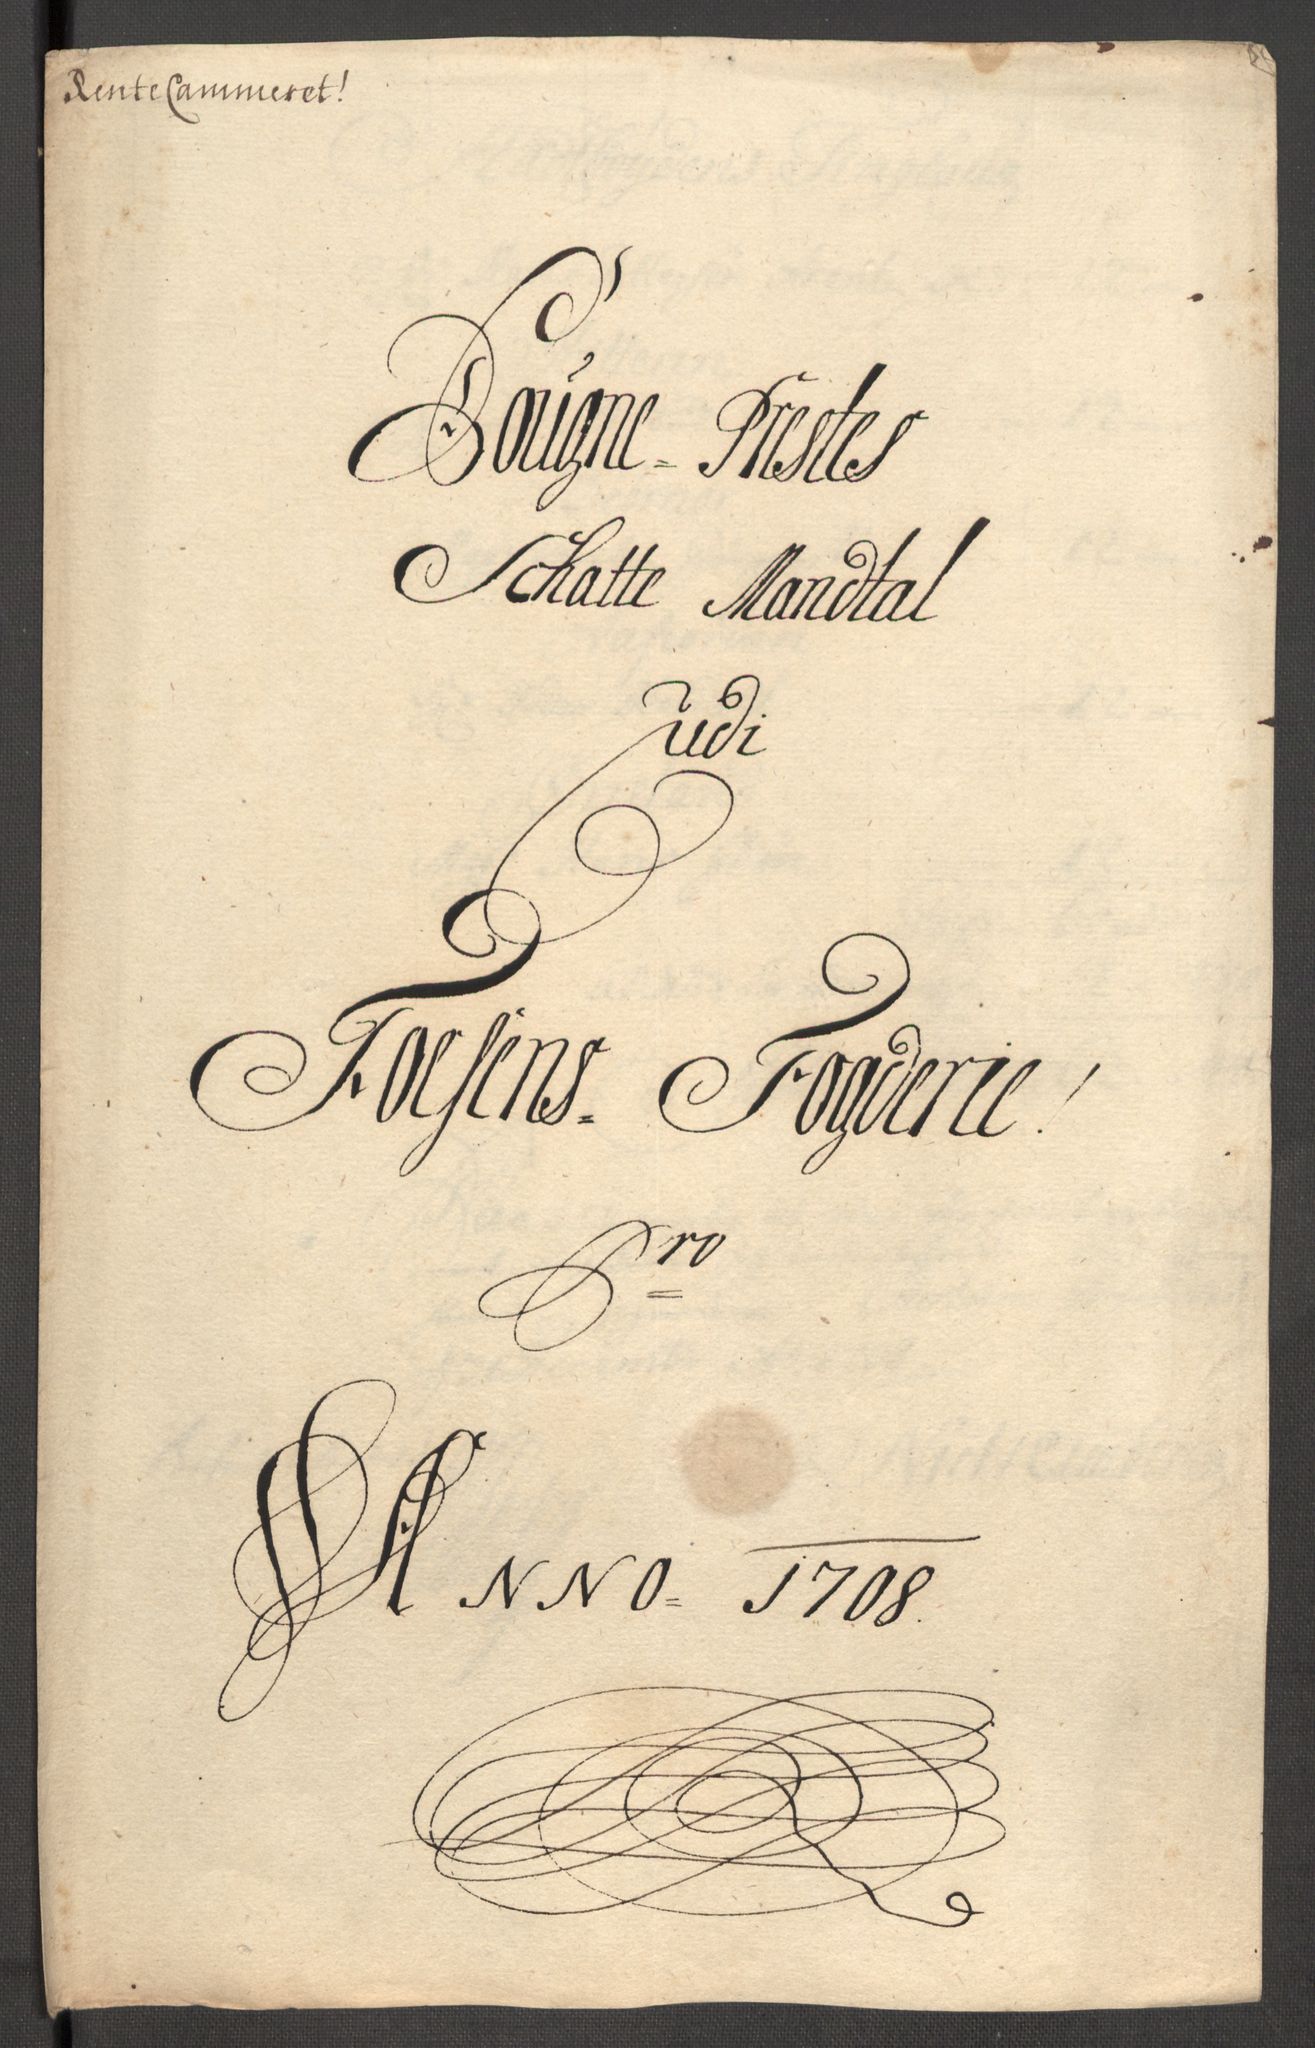 RenteCammeret!
Sougne-Prestes
Schatte Mandtal
udi
Foesens- Fogderie!
Pro
ANNO- 1708.